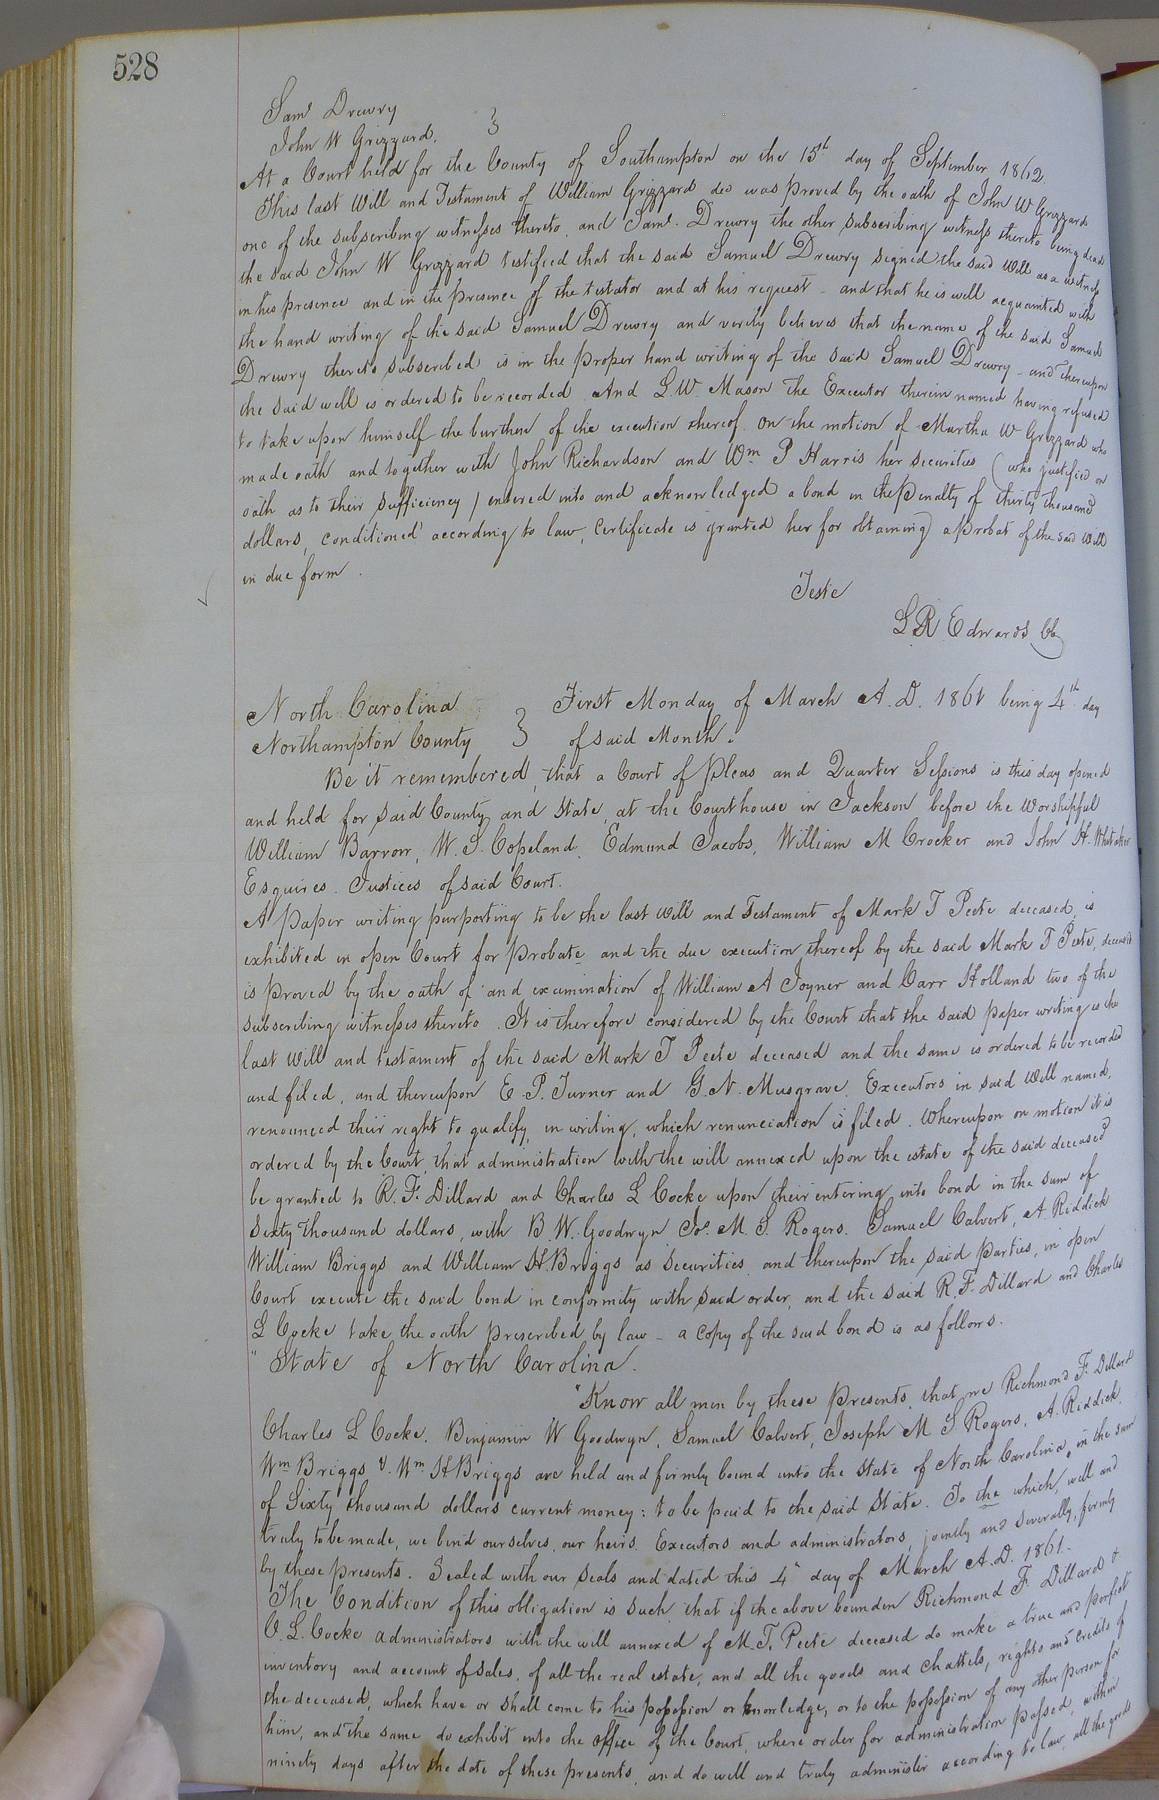 528
Saml Drewry
John W Grizzard. }
At a Court held for the County of Southampton on the 15th day of September 1862.
This last Will and Testament of William Grizzard decd was proved by the oath of John W Grizzard
one of the subscribing witnesses thereto, and Saml. Drewry the other subscribing witness thereto being dead
the said John W Grizzard testified that the said Samuel Drewry signed the said Will as a witness
in his presence and in the presence of the testator and at his request - and that he is well acquainted with
the hand writing of the said Samuel Drewry and verily believes that the name of the said Samuel
Drewry thereto subscribed is in the proper hand writing of the said Samuel Drewry - and thereupon
the said will is ordered to be recorded. And L. W. Mason the Executor therein named having refused
to take upon himself the burthen of the execution thereof. On the motion of Martha W Grizzard who
made oath and together with John Richardson and Wm P Harris her securities (who justified on
oath as to their sufficiency) entered into and acknowledged a bond in the penalty of thirty thousand
dollars, conditioned according to law, Certificate is granted her for obtaining a probat of the said Will
in due form.
Teste
L R Edwards Ck
North Carolina } First Monday of March A. D. 1861 being 4th day
Northampton County } of said Month.
Be it remembered, that a Court of Pleas and Quarter Sessions is this day opened
and held for said County and State, at the Courthouse in Jackson before the Worshipful
William Barrow, W. S. Copeland, Edmund Jacobs, William M Crocker and John H. Whitaker
Esquires. Justices of said Court.
A paper writing purporting to be the last will and Testament of Mark T Peete deceased, is
exhibited in open Court for Probate and the due execution thereof by the said Mark T Peete, deceased
is proved by the oath of and examination of William A Joyner and Carr Holland two of the
subscribing witnesses thereto. It is therefore considered by the Court that the said paper writing is the
last Will and testament of the said Mark T Peete deceased and the same is ordered to be recorded
and filed, and thereupon E. P. Turner and G. N. Musgrave. Executors in said Will named,
renounced their right to qualify, in writing, which renunciation is filed. Whereupon on motion it is
ordered by the Court, that administration with the will annexed upon the estate of the said deceased
be granted to R. F. Dillard and Charles L Cocke upon their entering into bond in the sum of
sixty thousand dollars, with B. W. Goodwyn Jos. M. S. Rogers. Samuel Calvert, A. Riddick
William Briggs and William H. Briggs as securities, and thereupon the said parties, in open
Court execute the said bond in conformity with said order, and the said R. F. Dillard and Charles
L Cocke take the oath prescribed by law - a copy of the said bond is as follows.
"State of North Carolina.
"Know all men by these Presents, that we Richmond F. Dillard
Charles L Cocke. Benjamin W Goodwyn, Samuel Calvert, Joseph M S Rogers, A. Riddick,
Wm Briggs & Wm H Briggs are held and firmly bound unto the State of North Carolina, in the sum
of Sixty thousand dollars current money: to be paid to the said State. To the which, well and
truly to be made, we bind ourselves, our heirs. Executors and administrators, jointly and severally, firmly
by these presents. Sealed with our seals and dated this 4" day of March A.D. 1861.
The Condition of this obligation is such, that if the above bounden Richmond F Dillard &
C. L. Cocke administrators with the will annexed of M. T. Peete deceased do make a true and perfect
inventory and account of sales, of all the real estate, and all the goods and chattels, rights and credits of
the deceased, which have or shall come to his possession or knowledge, or to the possession of any other person for
him, and the same do exhibit into the office of the Court, where order for administration passed, within
ninety days after the date of these presents, and do well and truly administer according to law, all the goods